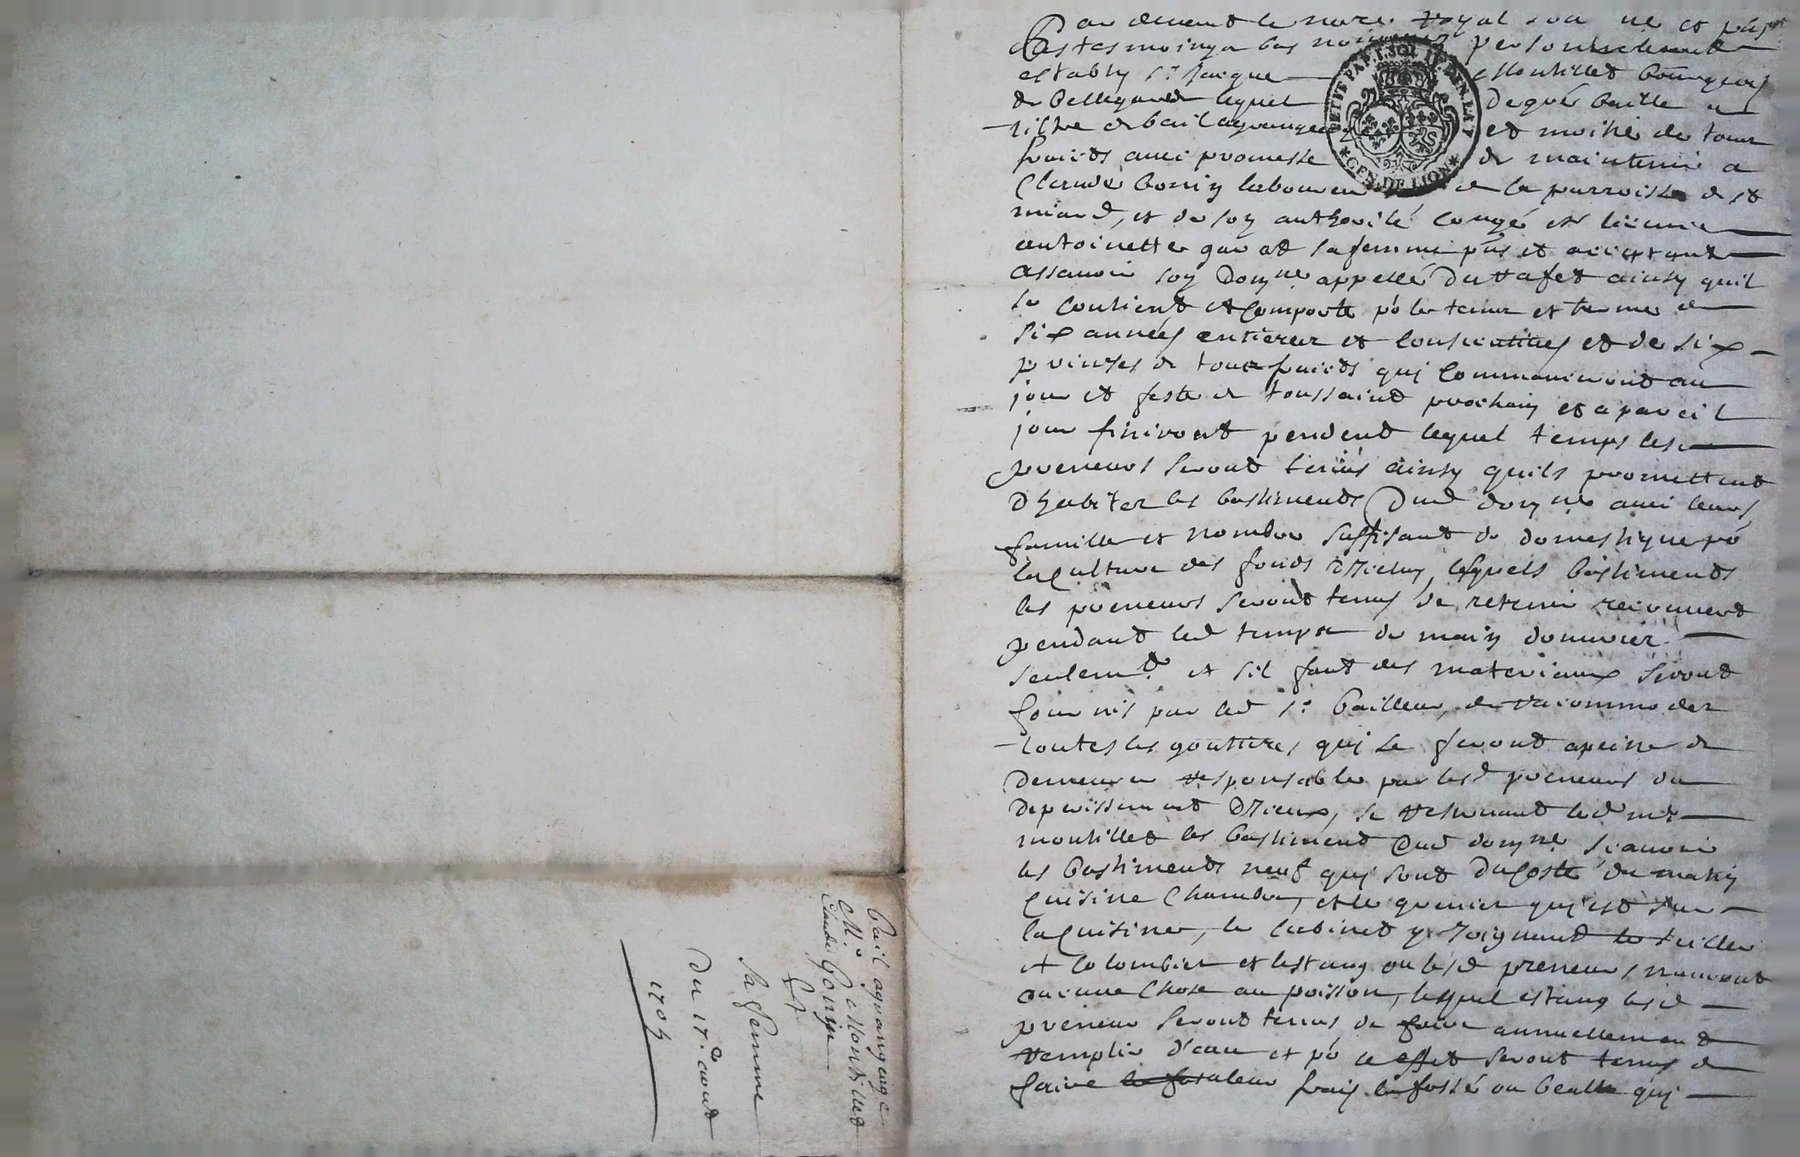 Par devant le nore royal sou né et présent
les tesmoings bas nommés personnelement
estably Sr Jacque Montillet bourgeois
de Bellegarde lequel de gré baille a
tiltre de bail agrangeage et moitié de tous
fruicts avec promesse de maintenir a
Claude Gonin laboureur de la parroisse de St
miard, et de soy authorité congé et licence
antoinette gar at sa femme pns et acceptant
assavoir son domne appellé Duttafet ainsy quil
se contient et comporte po le temps et terme de
six années entieres et consecutives et de six
prinses de tout fruicts quj commanceront au
jour et feste de toussaint prochain et a pareil
jour finiront pendent lequel temps lesd
preneurs seront tenus ainsy quils promettent
dhabiter les bastiments dud domne avec leurs
famille et nombre suffisant de domestique po
la culture des fonds dicelluy, lesquels bastiments
les preneurs seront tenus de retenir recouvert
pendant led temps de main douvrier
seulemt et sil faut des materiaux seront
fournis par led Sr bailleur, de racommoder
toutes les gouttieres quj se feront a peine de
demeurer responsable par lesd preneurs du
deperissement diceux, se reservant led mr
montillet les bastiment dud domne scavoir
les bastiments neuf quj sont du costé du matin
cuisine chambre, et le grenier quj est sur
la cuisine, le cabinet y joignant
et colombier et lestang ou lesd preneurs nauront
aucune chose au poisson, lequel estang lesd
preneur seront tenus de faire annuellement
remplir d'eau et po ce effet seront tenus de
faire a leur frais le fossé ou bealle quj
GEN. DE LION
bail agrangeage
Mr Montillet
Claude Gonin
Et
sa femme
Du 17e aoust
1705